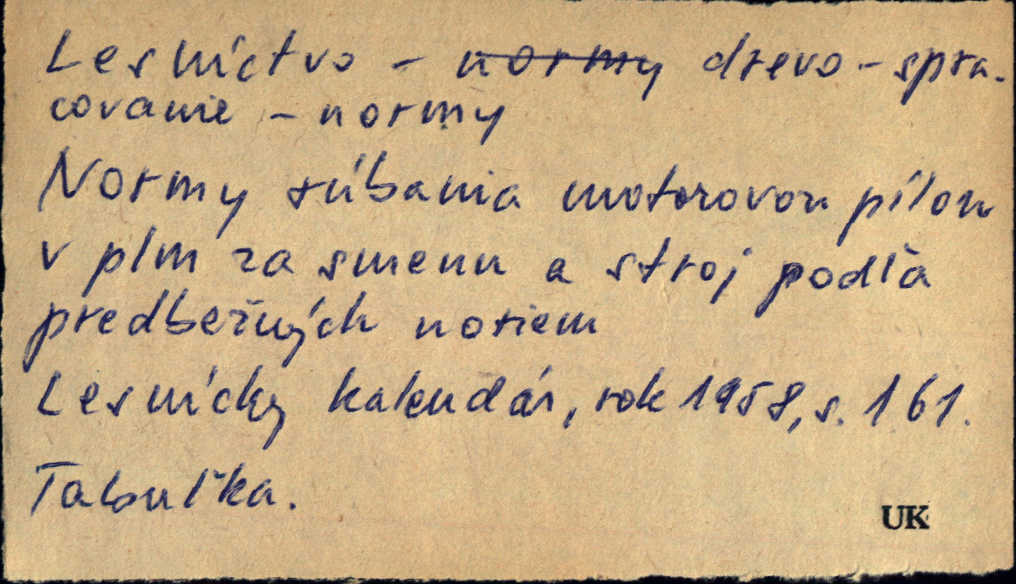 Lesníctvo - normy drevo - spra-
covanie - normy
Normy rúbania motorovou pílou
v plm za smenu a stroj podľa
predbežných noriem
Lesnícky kalendár, rok 1958, s. 161.
Tabuľka.
UK